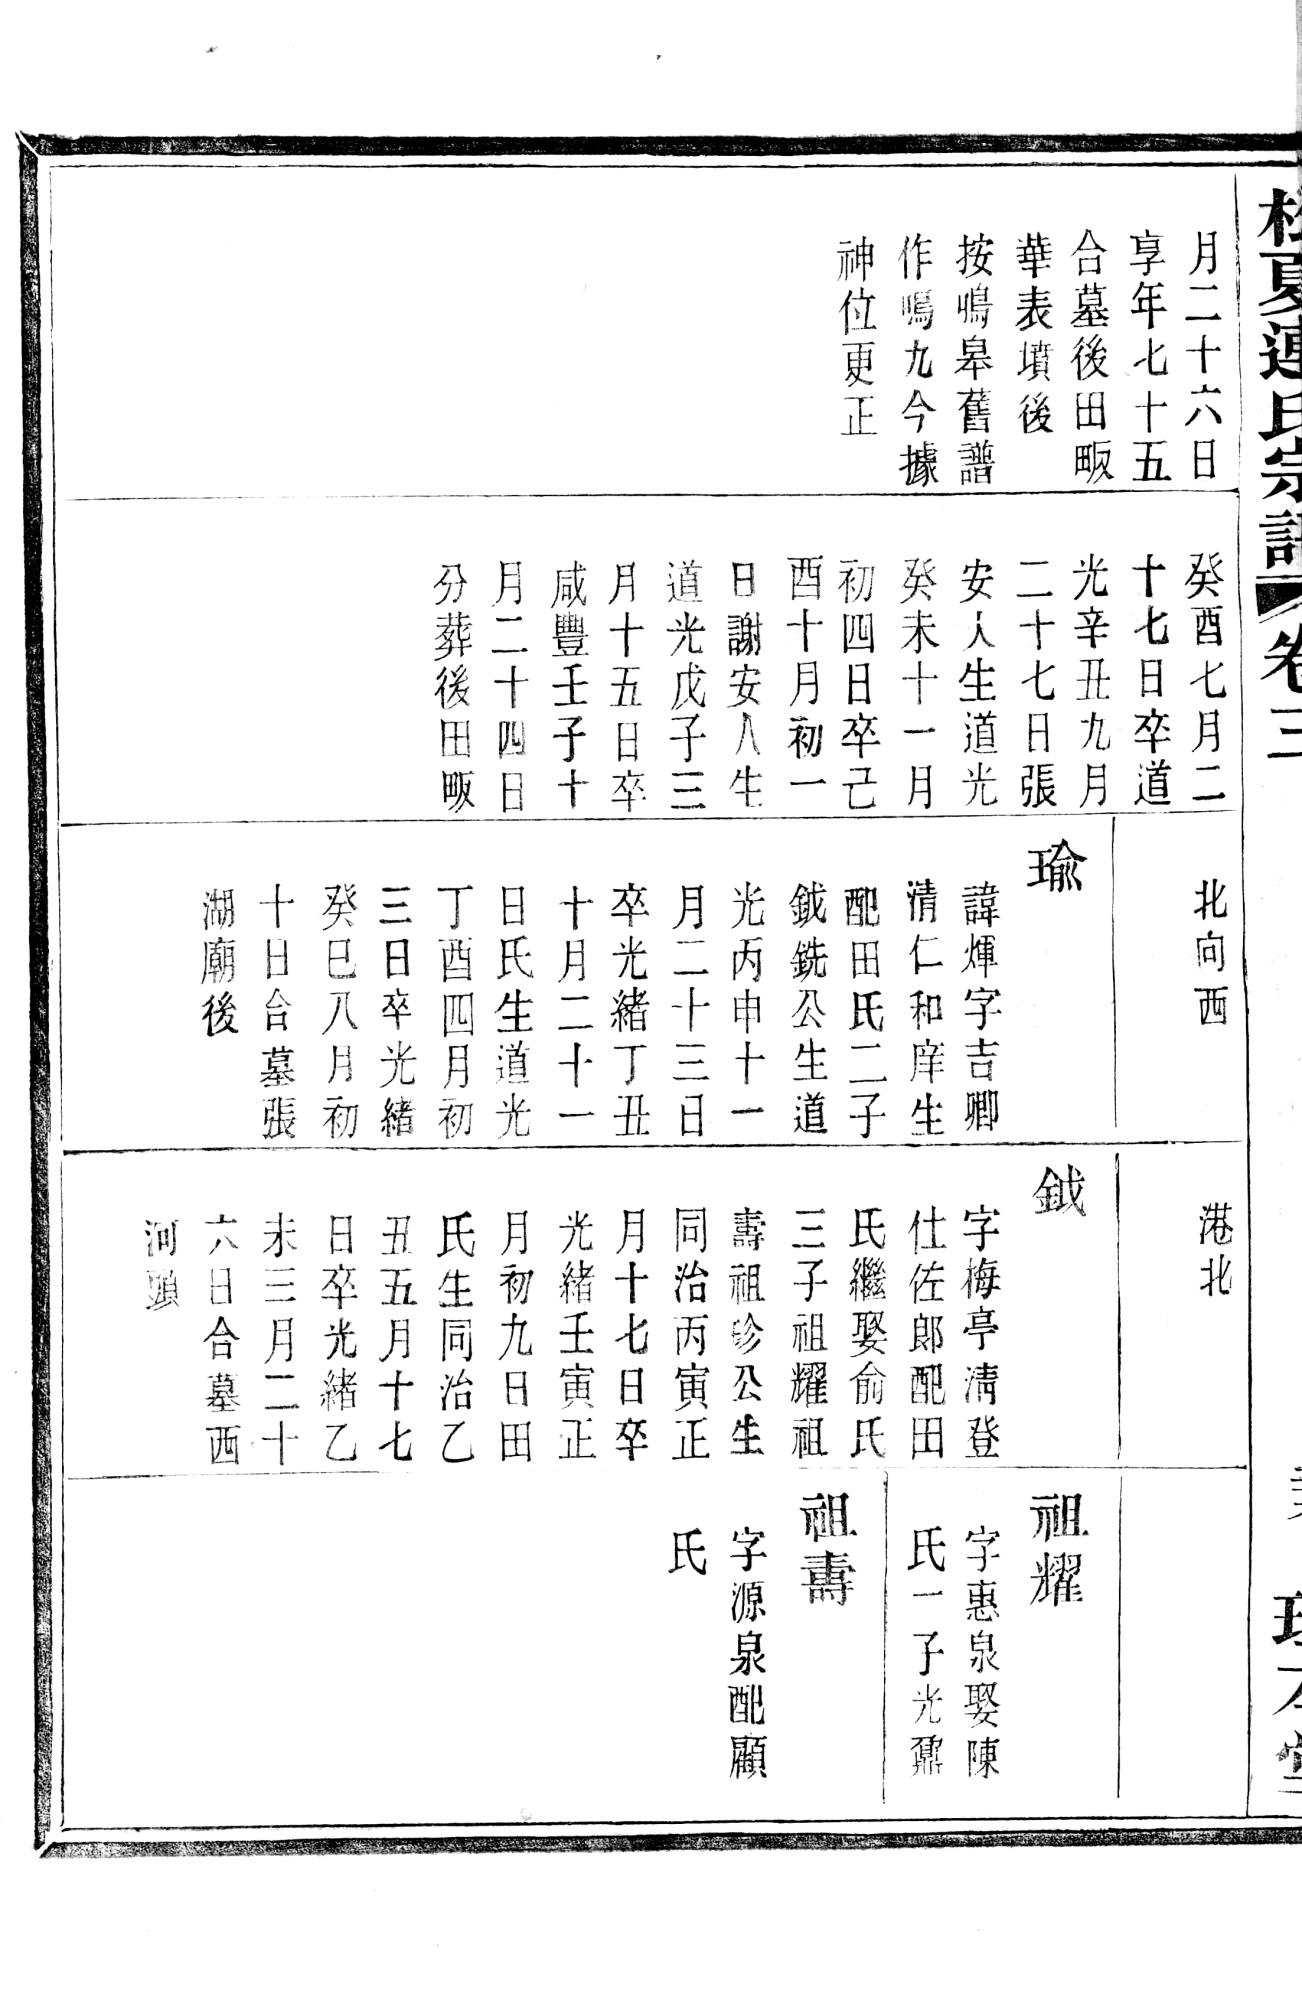 松夏連氏宗譜
卷三
月二十六日
享年七十五
合墓後田畈
華表墳後
按鳴皋舊譜
作鳴九今據
神位更正
癸酉七月二
十七日卒道
光辛丑九月
二十七日張
安人生道光
癸未十一月
初四日卒己
酉十月初一
日謝安人生
道光戊子三
月十五日卒
咸豐壬子十
月二十四日
分葬後田畈
北向西
瑜
諱煇字吉卿
清仁和庠生
配田氏二子
鉞銑公生道
光丙申十一
月二十三日
卒光緒丁丑
十月二十一
日氏生道光
丁酉四月初
三日卒光緒
癸巳八月初
十日合墓張
湖廟後
港北
鉞
字梅亭清登
仕佐郎配田
氏繼娶俞氏
三子祖耀祖
壽祖珍公生
同治丙寅正
月十七日卒
光緒壬寅正
月初九日田
氏生同治乙
丑五月十七
日卒光緒乙
未三月二十
六日合墓西
河頭
祖耀
字惠泉娶陳
氏一子光鼐
祖壽
字源泉配顧
氏